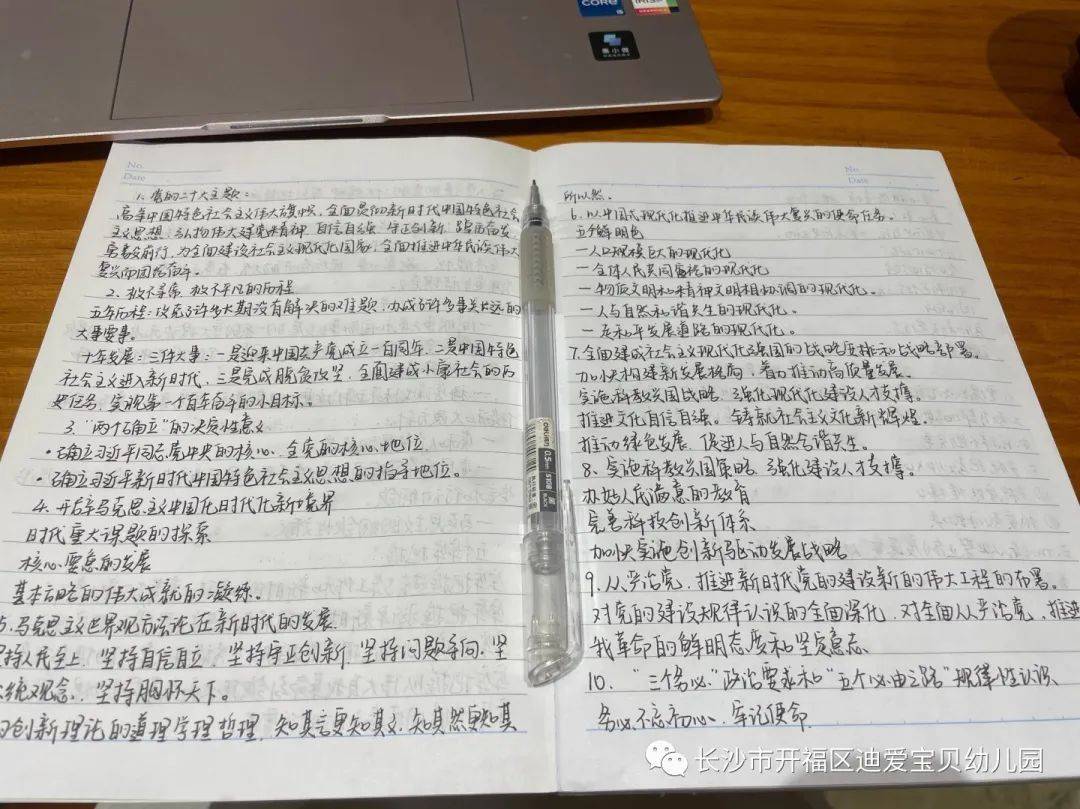 CORE
i5
No.
Date
1. 党的二十大主题:
高举中国特色社会主义伟大旗帜，全面贯彻新时代中国特色社会
主义思想，弘扬伟大建党精神，自信自强，守正创新，踔厉奋发
勇毅前行，为全面建设社会主义现代化国家，全面推进中华民族伟大
复兴而团结奋斗。
2. 极不寻常，极不平凡的历程
五年历程：攻克了许多大期没有解决的难题，办成了许多事关长远的
大事要事。
十年发展：三件大事：一是迎来中国共产党成立一百周年，二是中国特色
社会主义进入新时代，三是完成脱贫攻坚，全面建成小康社会的历
史任务，实现第一个百年奋斗的小目标。
3. "两个确立"的决定性意义
·确立习近平同志党中央的核心、全党的核心地位
·确立习近平新时代中国特色社会主义思想的指导地位。
4. 开辟马克思主义中国化时代化新境界
时代重大课题的探索
核心要意的发展
基本方略的伟大成就的凝练。
5. 马克思主义世界观方法论在新时代的发展
坚持人民至上，坚持自信自立，坚持守正创新，坚持问题导向，坚
系统观念，坚持胸怀天下。
的创新理论的道理学理哲理，知其言更知其义，知其然更知其
No.
Date
所以然。
6. 以中国式现代化推进中华民族伟大复兴的使命任务。
五个鲜明色
一人口规模巨大的现代化
一全体人民共同富裕的现代化
一物质文明和精神文明相协调的现代化。
一人与自然和谐共生的现代化。
一走和平发展道路的现代化。
7. 全面建成社会主义现代化强国的战略安排和战略部署。
加快构建新发展格局，着力推动高质量发展。
实施科教兴国战略，强化现代化建设人才支撑。
推进文化自信自强。铸就社会主义文化新辉煌。
推动绿色发展，促进人与自然合谐共生。
8. 实施科教兴国策略，强化建设人才支撑。
办好人民满意的教育
完善科技创新体系
加快实施创新驱动发展战略
9. 从严治党，推进新时代党的建设新的伟大工程的部署。
对党的建设规律认识的全面深化，对全面从严治党，推进
我革命的鲜明态度和坚定意志
10. "三个务必"政治要求和"五个必由之路"规律性认识
务必不忘初心、牢记使命
0.5mm
长沙市开福区迪爱宝贝幼儿园